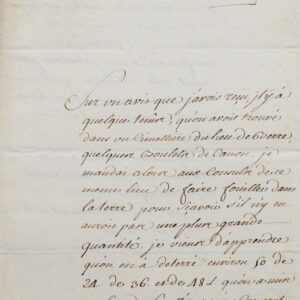 Sur un avis que j'avois reçu, il y à
quelque tems, qu'on avois trouvé
dans un Cimettiere du lieu de Berre
quelques Boulets de Canon, je
mandai alors aux Consuls de ce
meme lieu de faire fouiller dans
la terre pour sçavoir s'il n'y en
auroit pas une plus grande
quantité. je viens d'apprendre
qu'on en a deterré environ 50 de
24 de 36 et de 48 ₶ qu'on a mis